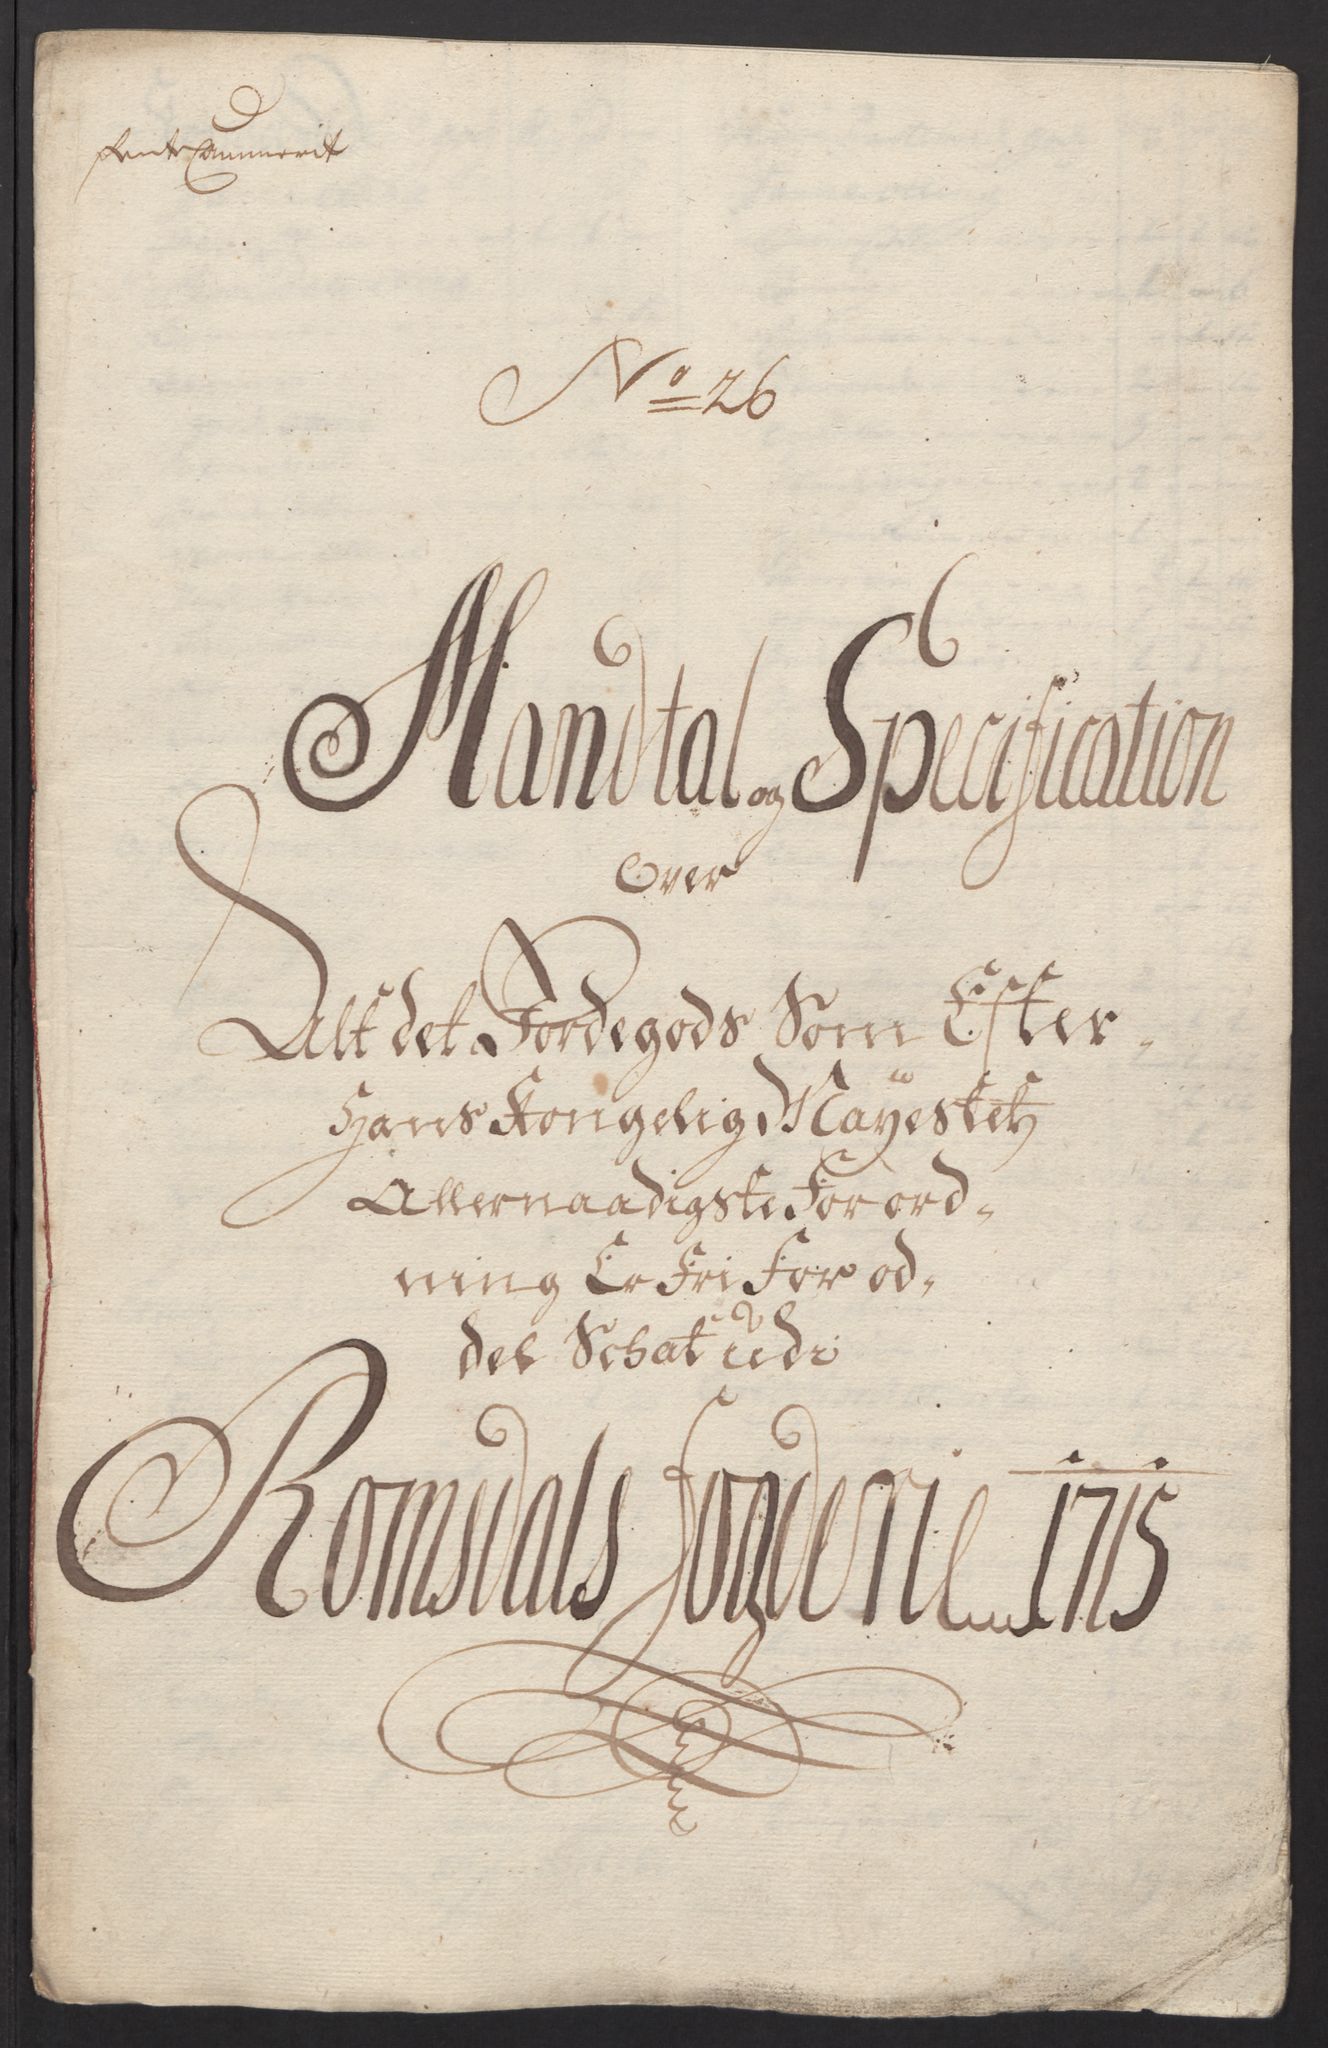 Rente Cammerit
No 26
Mandtal og Specification
Over
Alt det Jordegods Som Efter
Hans Kongelig Mayestetz
Allernaadigste Forord-
ning Er Fri For od-
del Schat udi
Romsdals fogderie 1715